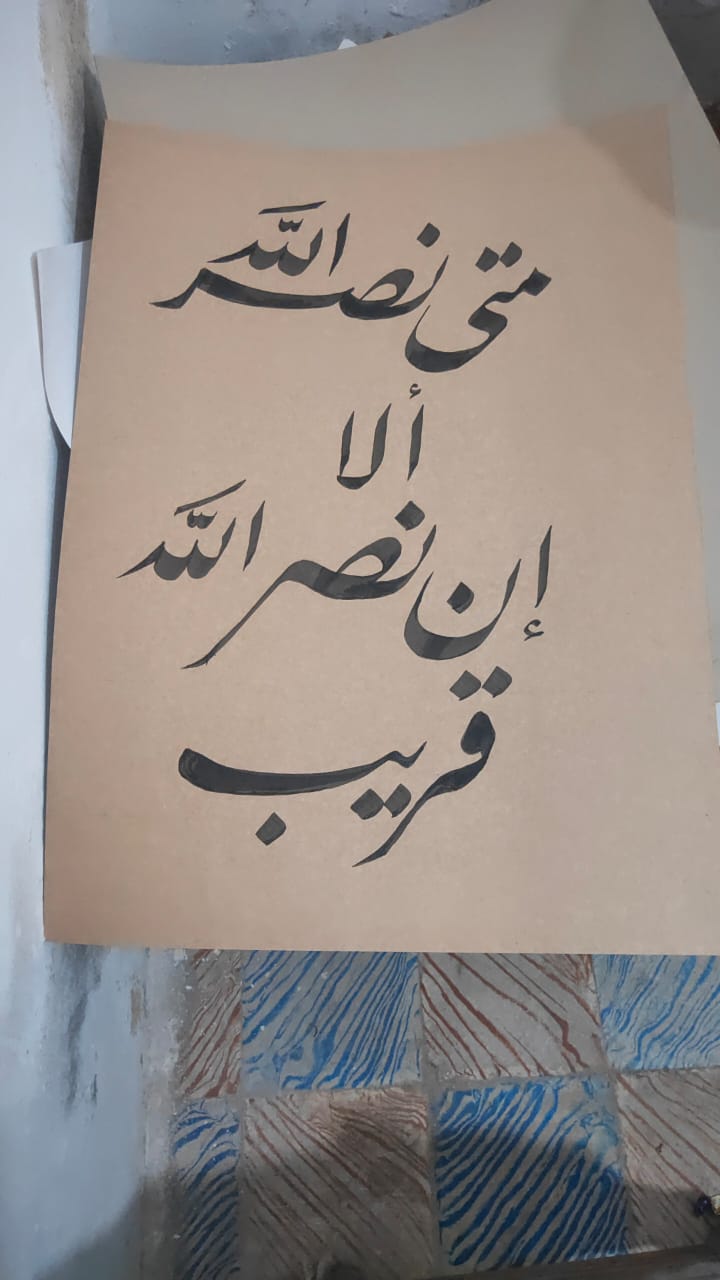 متى نصر الله
ألا
إن نصر الله
قريب